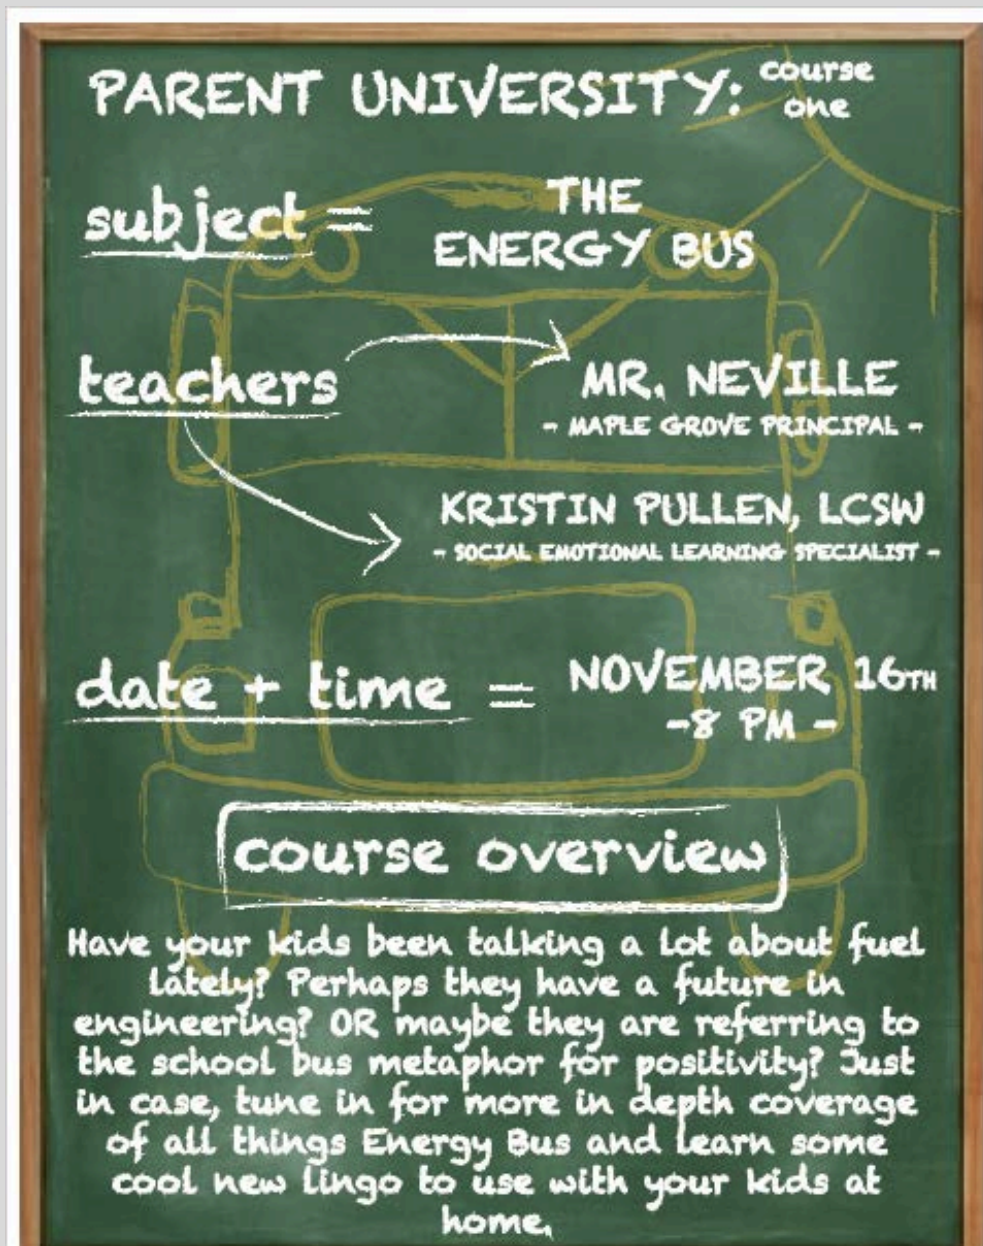 PARENT UNIVERSITY: course one
subject = THE ENERGY BUS
teachers
MR. NEVILLE
- MAPLE GROVE PRINCIPAL -
KRISTIN PULLEN, LCSW
- SOCIAL EMOTIONAL LEARNING SPECIALIST -
date + time = NOVEMBER 16TH
-8 PM -
course overview
Have your kids been talking a lot about fuel
lately? Perhaps they have a future in
engineering? OR maybe they are referring to
the school bus metaphor for positivity? Just
in case, tune in for more in depth coverage
of all things Energy Bus and learn some
cool new lingo to use with your kids at
home.